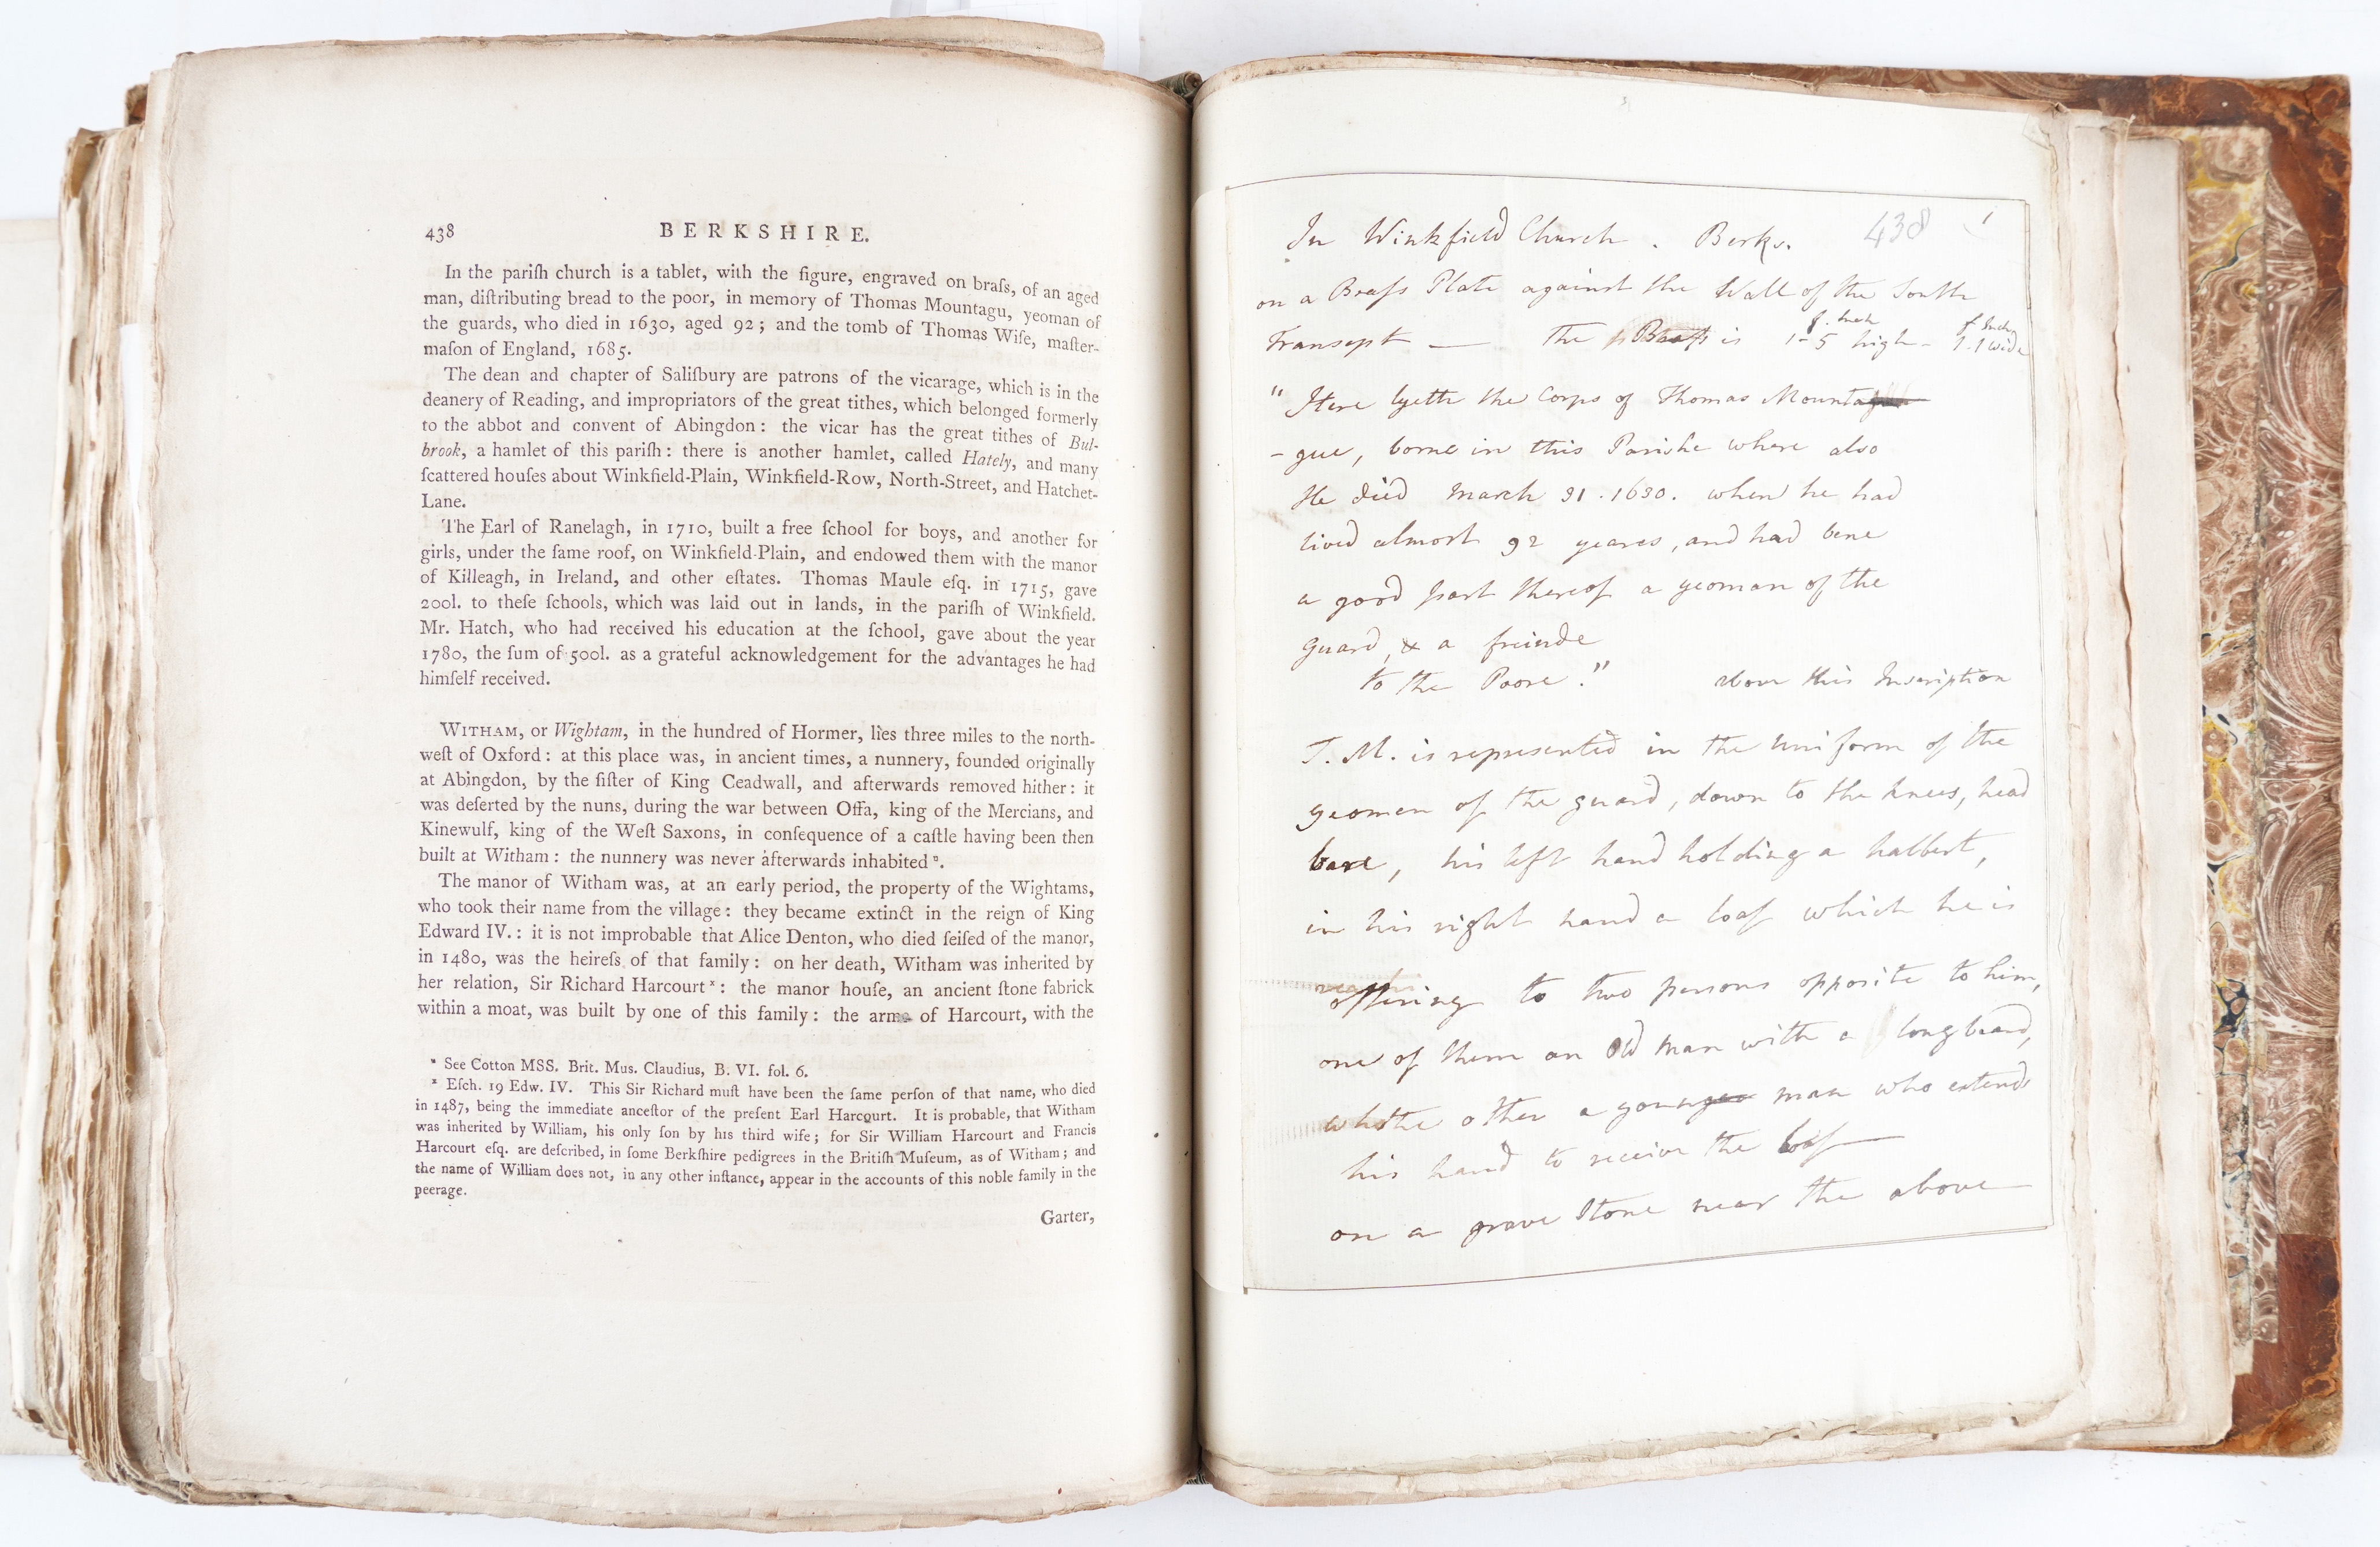 438 BERKSHIRE.
In the pariſh church is a tablet, with the figure, engraved on braſs, of an aged
man, diſtributing bread to the poor, in memory of Thomas Mountagu, yeoman of
the guards, who died in 1630, aged 92; and the tomb of Thomas Wiſe, maſter-
maſon of England, 1685.
The dean and chapter of Saliſbury are patrons of the vicarage, which is in the
deanery of Reading, and impropriators of the great tithes, which belonged formerly
to the abbot and convent of Abingdon: the vicar has the great tithes of Bul-
brook, a hamlet of this pariſh: there is another hamlet, called Hately, and many
ſcattered houſes about Winkfield-Plain, Winkfield-Row, North-Street, and Hatchet-
Lane.
The Earl of Ranelagh, in 1710, built a free ſchool for boys, and another for
girls, under the ſame roof, on Winkfield-Plain, and endowed them with the manor
of Killeagh, in Ireland, and other eſtates. Thomas Maule eſq. in 1715, gave
200l. to theſe ſchools, which was laid out in lands, in the pariſh of Winkfield.
Mr. Hatch, who had received his education at the ſchool, gave about the year
1780, the ſum of 500l. as a grateful acknowledgement for the advantages he had
himſelf received.
WITHAM, or Wightam, in the hundred of Hormer, lies three miles to the north-
weſt of Oxford: at this place was, in ancient times, a nunnery, founded originally
at Abingdon, by the ſiſter of King Ceadwall, and afterwards removed hither: it
was deſerted by the nuns, during the war between Offa, king of the Mercians, and
Kinewulf, king of the Weſt Saxons, in conſequence of a caſtle having been then
built at Witham: the nunnery was never afterwards inhabited ᵘ.
The manor of Witham was, at an early period, the property of the Wightams,
who took their name from the village: they became extinct in the reign of King
Edward IV.: it is not improbable that Alice Denton, who died ſeiſed of the manor,
in 1480, was the heireſs of that family: on her death, Witham was inherited by
her relation, Sir Richard Harcourt ˣ: the manor houſe, an ancient ſtone fabrick
within a moat, was built by one of this family: the arms of Harcourt, with the
ᵘ See Cotton MSS. Brit. Mus. Claudius, B. VI. fol. 6.
ˣ Eſch. 19 Edw. IV. This Sir Richard muſt have been the ſame perſon of that name, who died
in 1487, being the immediate anceſtor of the preſent Earl Harcourt. It is probable, that Witham
was inherited by William, his only ſon by his third wife; for Sir William Harcourt and Francis
Harcourt eſq. are deſcribed, in ſome Berkſhire pedigrees in the Britiſh Muſeum, as of Witham; and
the name of William does not, in any other inſtance, appear in the accounts of this noble family in the
peerage.
Garter,
In Winkfield Church. Berks. 438 1
on a Braſs Plate against the Wall of the South
Transept — The Braſs is 1-5 high - 1.1 wide
f. Inch f. Inch
"Here lyeth the Corps of Thomas Mounta
-gue, borne in this Parishe where also
He died March 31. 1630. when he had
lived almost 92 yeares, and had bene
a good part thereof a yeoman of the
guard, & a friende
to the Poore." above this Inscription
T. M. is represented in the Uniform of the
yeomen of the guard, down to the knees, head
bare, his left hand holding a halbert,
in his right hand a loaf which he is
offering to two persons opposite to him,
one of them an Old man with a long beard,
the other a young man who extends
his hand to receive the loaf —
on a grave Stone near the above —